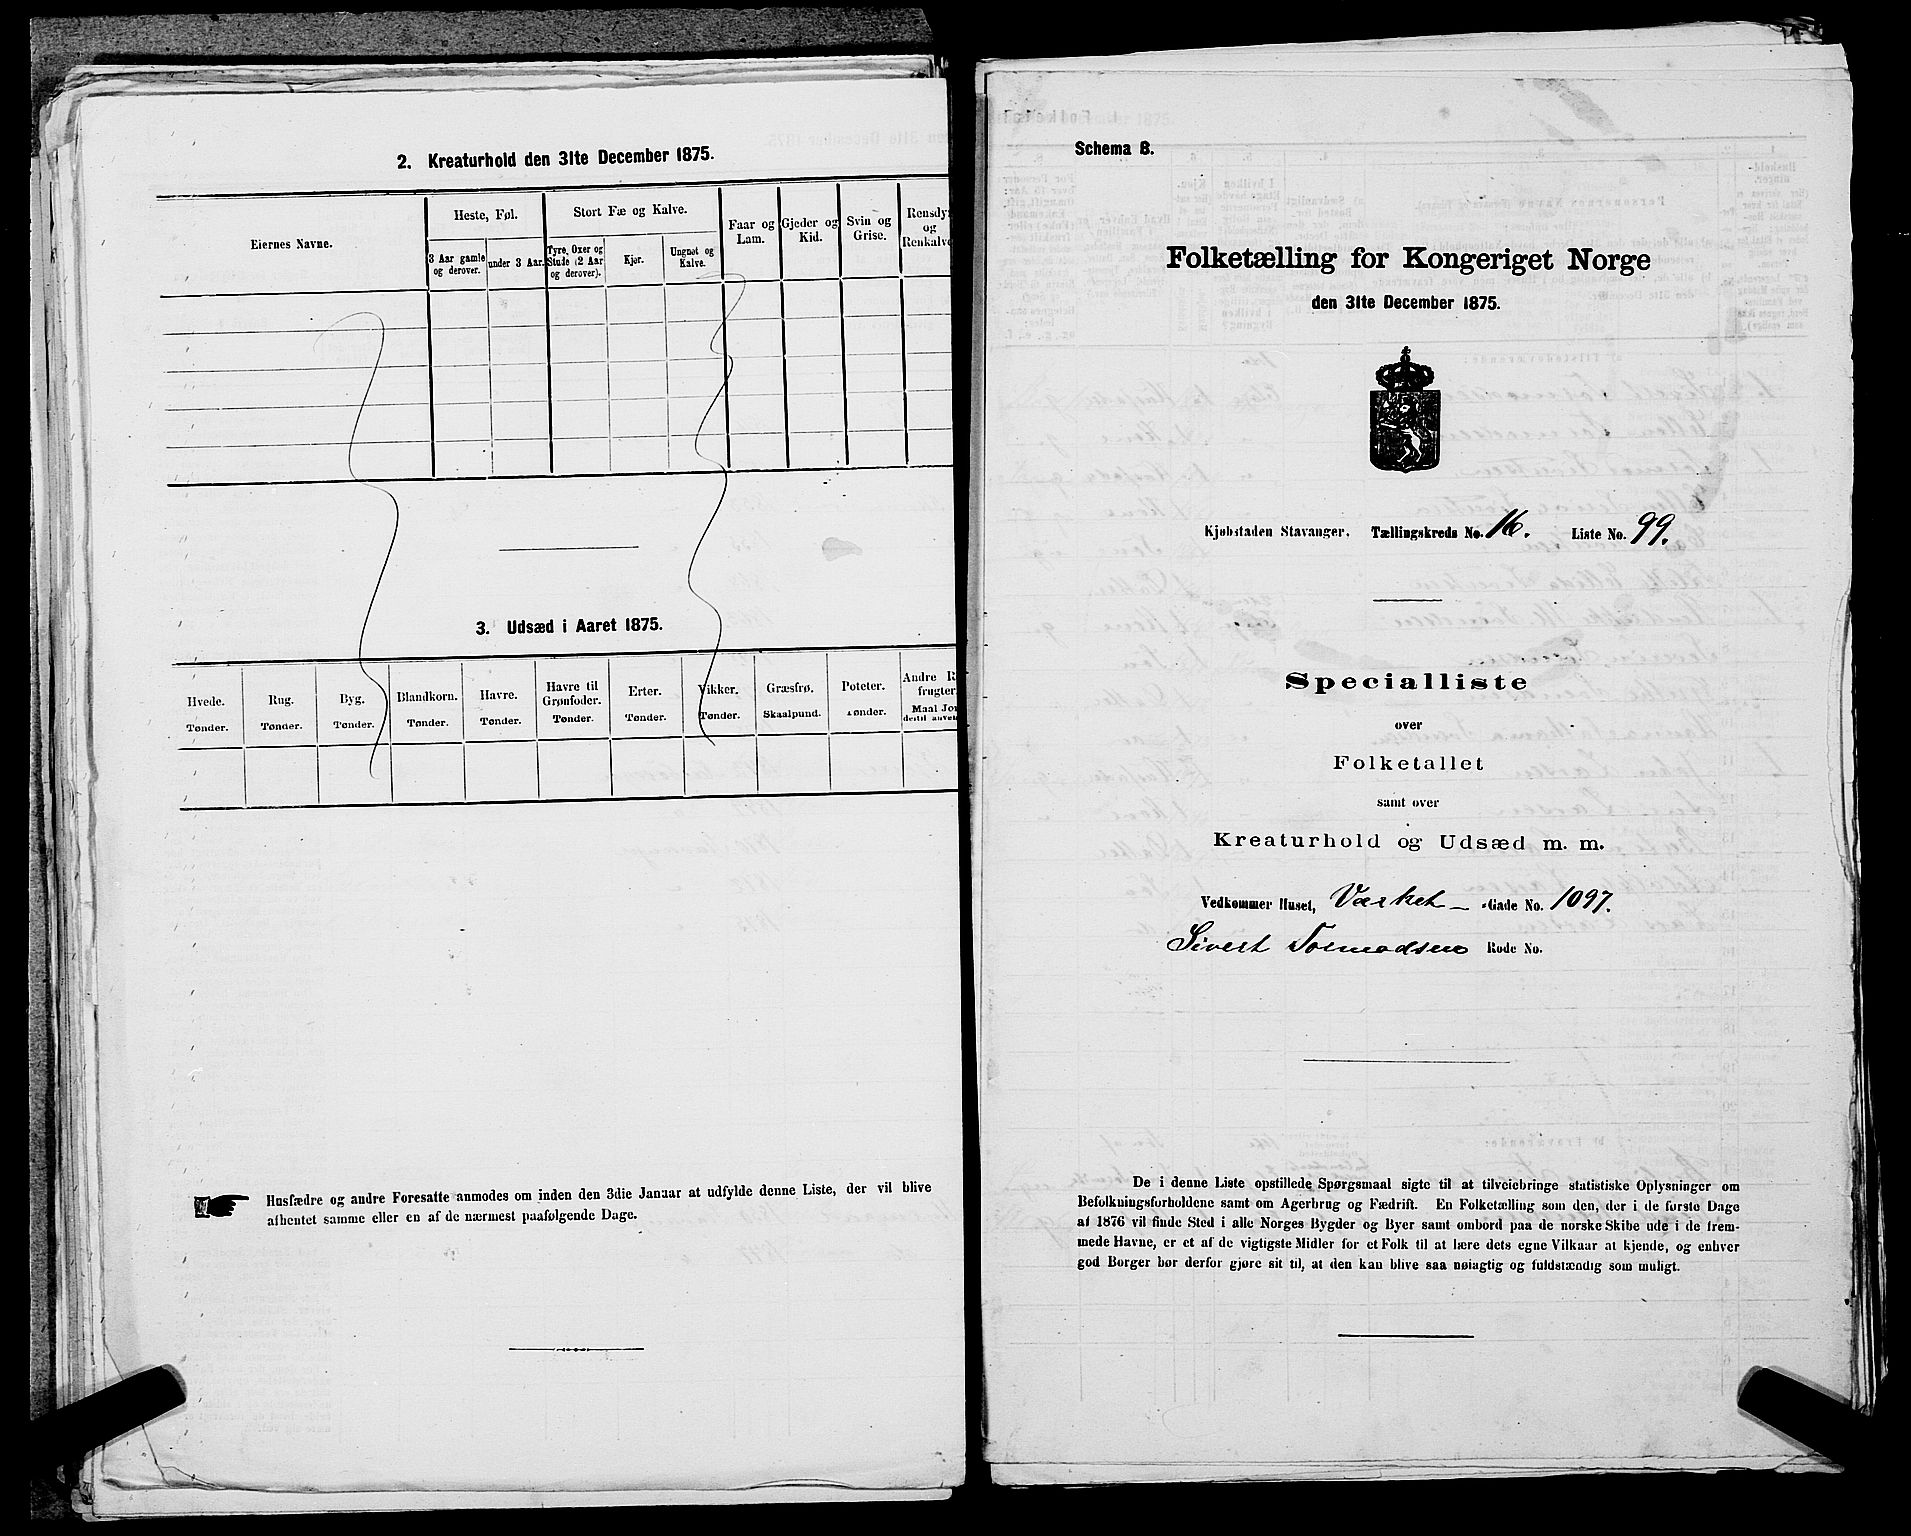 2. Kreaturhold den 31te December 1875.
Eiernes Navne.
Heste, Føl.
Stort Fæ og Kalve.
Faar og Lam.
Gjeder og Kid.
Svin og Grise.
Rensdy
og
Renkalve
3 Aar gamle og derover.
under 3 Aar.
Tyre, Oxer og Stude (2 Aar og derover).
Kjør.
Ungnøt og Kalve.
3. Udsæd i Aaret 1875.
Hvede.
Rug.
Byg.
Blandkorn.
Havre.
Havre til Grønfoder.
Erter.
Vikker.
Græsfrø.
Poteter.
Andre R
frugter
Tønder.
Tønder.
Tønder.
Tønder.
Tønder.
Tønder.
Tønder.
Tønder.
Skaalpund.
Tønder.
Maal Jor
dertil anvet
Husfædre og andre Foresatte anmodes om inden den 3die Januar at udfylde denne Liste, der vil blive
afhentet samme eller en af de nærmest paafølgende Dage.
Schema B.
Folketælling for Kongeriget Norge
den 31te December 1875.
Kjøbstaden Stavanger. Tællingskreds No. 16. Liste No. 99.
Specialliste
over
Folketallet
samt over
Kreaturhold og Udsæd m. m.
Vedkommer Huset, Værket - Gade No. 1097.
Sivert Tormodsen Rode No.
De i denne Liste opstillede Spørgsmaal sigte til at tilveiebringe statistiske Oplysninger om
Befolkningsforholdene samt om Agerbrug og Fædrift. En Folketælling som den, der i de første Dage
af 1876 vil finde Sted i alle Norges Bygder og Byer samt ombord paa de norske Skibe ude i de frem-
mede Havne, er et af de vigtigste Midler for et Folk til at lære dets egne Vilkaar at kjende, og enhver
god Borger bør derfor gjøre sit til, at den kan blive saa nøiagtig og fuldstændig som muligt.